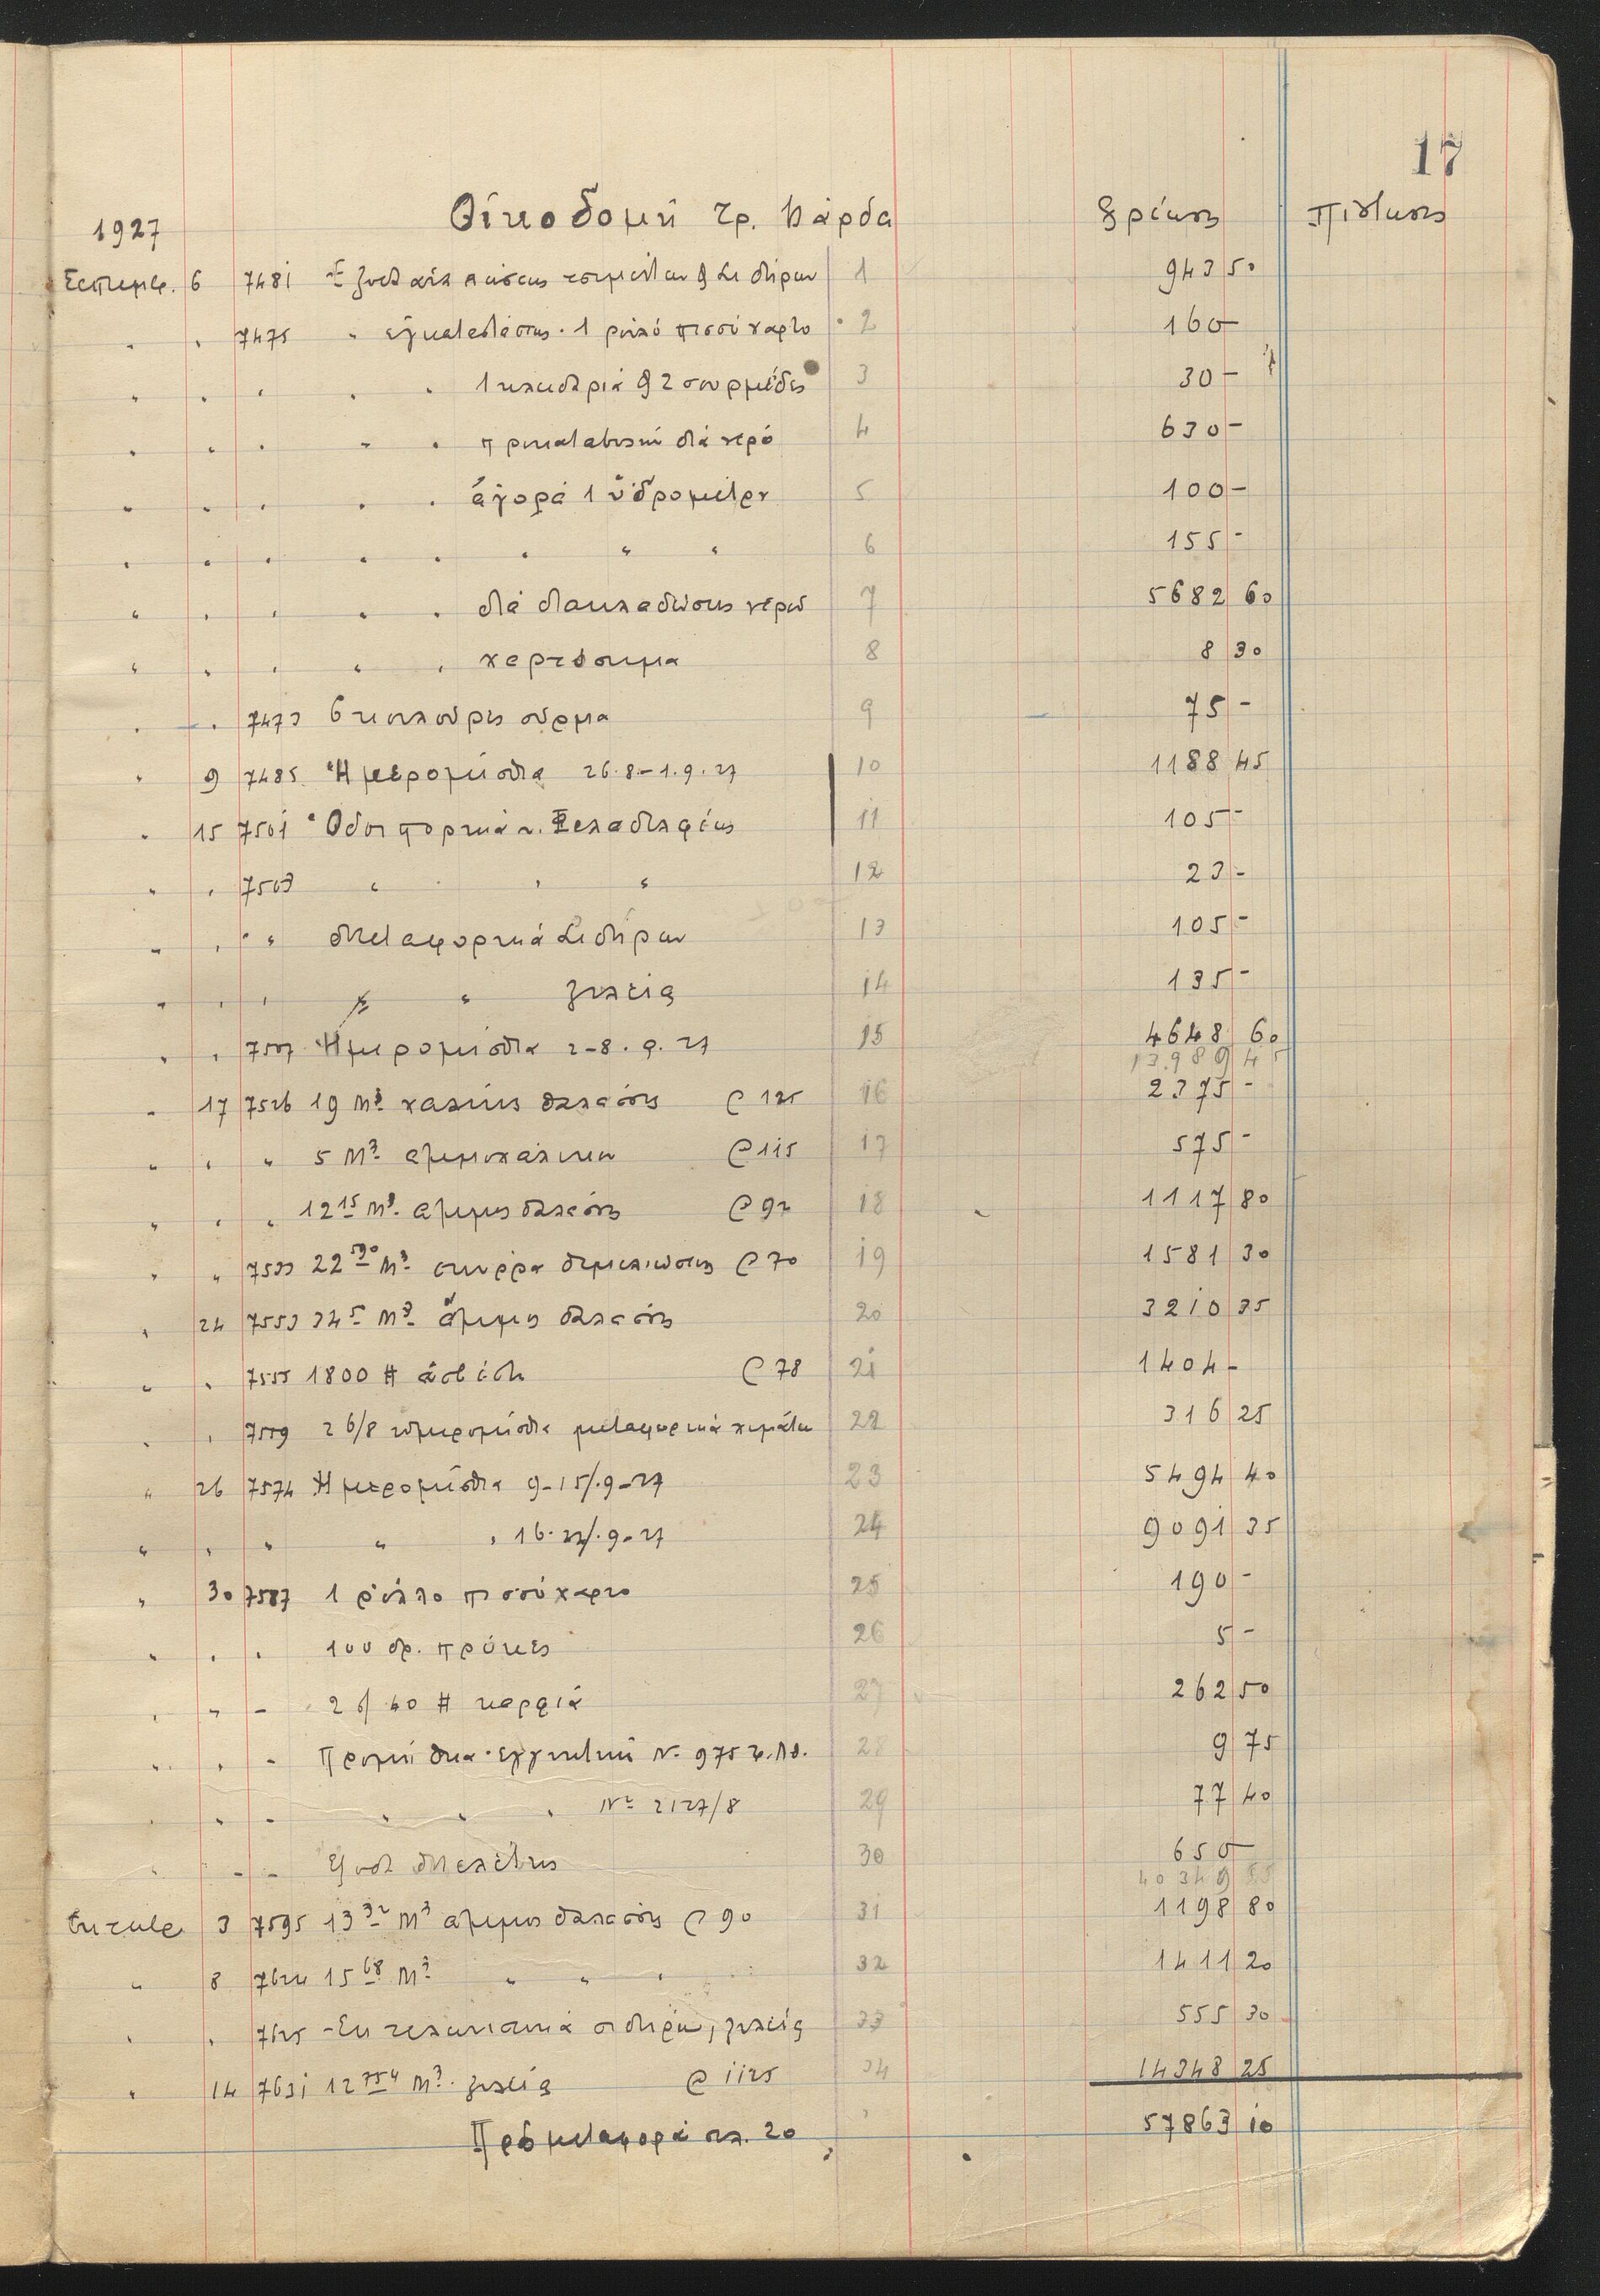 17
1927 Οἰκοδομὴ Γρ. Κάρδα Χρέωσις Πίστωσις
Σεπτεμβ. 6 7481 Ἔξοδα σιδήρων 1 943 50
" " 7475 " ἐγκαταστάσεως · 1 ρουλό πισσόχαρτο 2 160 –
" " " " " 1 κλειδαριά & 2 σουρμέδες 3 30 –
" " " " " προκαταβολή διά νερό 4 630 –
" " " " " ἀγορά 1 ὑδρομέτρου 5 100 –
" " " " " " " " 6 155 –
" " " " " διά διακλαδώσεις νερού 7 5682 60
" " " " " χαρτόσημα 8 8 30
" " 7473 6 κουλούρες σύρμα 9 75 –
" 9 7485 Ἡμερομίσθια 26.8–1.9.27 10 1188 45
" 15 7501 Ὁδοιπορικά Φιλαδελφέως 11 105 –
" " 7503 " " " 12 23 –
" " " " Μεταφορικά σιδήρων 13 105 –
" " " " " ξυλείας 14 135 –
" " 7507 Ἡμερομίσθια 2–8.9.27 15 4648 60
13.989 45
" 17 7526 19 M3 χαλίκι θαλάσσης @ 125 16 2375 –
" " " 5 M3 αμμοχάλικου @ 115 17 575 –
" " " 12 15 M3 αμμος θαλάσσης @ 92 18 1117 80
" " 7533 22 590 M3 θεμελιώσεως @ 70 19 1581 30
" 24 7553 34 5 M3 ἄμμος θαλάσσης 20 3210 35
" " 7555 1800 # ἀσβέστη @ 78 21 1404 –
" " 7559 26/8 ημερομίσθια μεταφορικά χωμάτων 22 316 25
" 26 7574 Ἡμερομίσθια 9–15/.9–27 23 5494 40
" " " " " 16.22/.9–27 24 9091 35
" 30 7587 1 ρούλλο πισσόχαρτο 25 190 –
" " " 100 δρ. πρόκες 26 5 –
" " – 26/40 # καρφιά 27 262 50
" " – Προμήθεια Ἐγγυητική Νο 975 28 9 75
" " – " " " Νο 2127/8 29 77 40
" – – Ἔξοδα Μελέτης 30 650 –
40349 55
Ὀκτωβρ 3 7595 13 32 M3 αμμος θαλάσσης @ 90 31 1198 80
" 8 7624 15 68 M3 " " " 32 1411 20
" " 7625 Ἐκτελωνιστικά σιδήρων, ξυλείας 33 555 30
" 14 7631 12 754 M3 ξυλείας @ 1125 34 14348 25
Πρός μεταφορά σελ. 20 57863 10